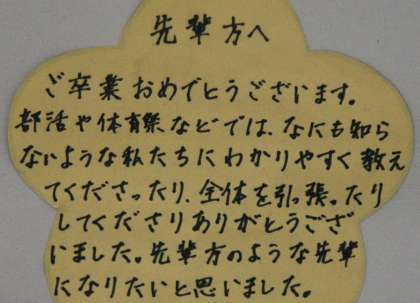 先輩方へ
ご卒業おめでとうございます。
部活や体育祭などでは、なにも知ら
ないような私たちにわかりやすく教え
てくださったり、全体を引っ張ったり
してくださりありがとうござ
いました。先輩方のような先輩
になりたいと思いました。